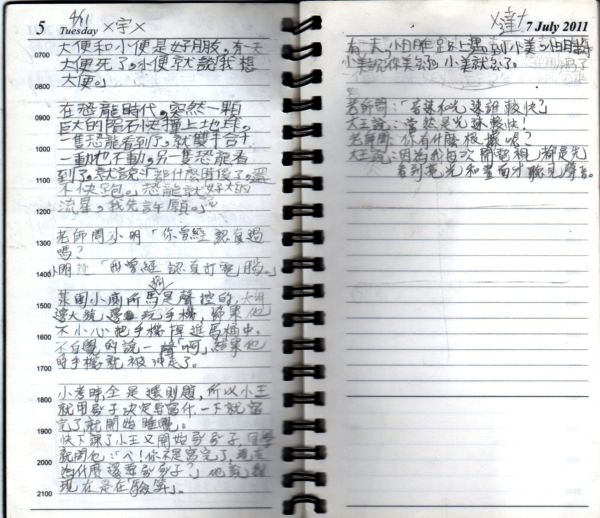 5
Tuesday
4/11
×宇×
0700
大便和小便是好朋友,有一天
大便死了。小便就說我想
0800
大便。」
在恐龍時代,突然一顆
0900
巨大的隕石快撞上地球。
一隻恐龍看到了,就雙手合十
1000
一動也不動,另一隻恐龍看
到了。就說:「都什麼時後了,還
1100
不快跑。」恐龍說:「好大的
流星,我先許願。」
1200
1300
老師問小明「你曾經認真過
嗎?
1400
小明說「我曾經認真打電腦。」
1500
某間小廁所馬是聲控的,小明
邊大號邊玩手機,結果他
1600
不小心把手機掉進馬桶中。
不自覺的說一聲「啊」,結果他
1700
的手機就被沖走了。
1800
小考時全是選則題,所以小王
就用骰子決定要寫什,一下就寫
1900
完了就開始睡覺。
快下課了小王又開始丟骰子,同學
2000
就問他:「ㄟ!你不是寫完了,
為什麼還要丟骰子?」他說:我
2100
現在是在「驗算」。
×達×
7 July 2011
有一天,小明在路上遇到小美
小美說你美么 小美就么了。
老師問:「音速和光速誰較快?」
大王說:當然是光速較快!
老師問:你有什麼根據呢?
大王說:因為我每次開電視,都是先
看到亮光和畫面才聽見聲音。